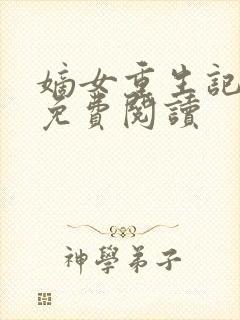 嫡女重生記
免費閱讀
神學弟子